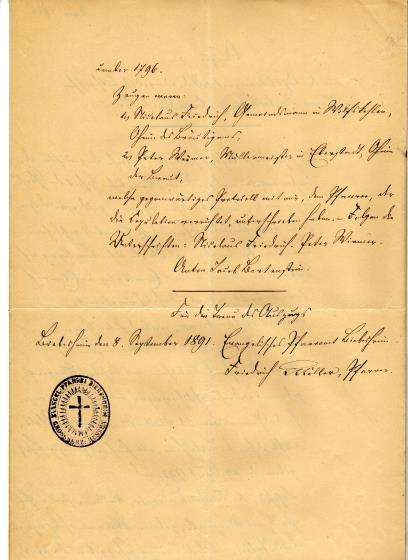 zember 1796.
Zeugen waren:
1, Nicolaus Friedrich, Gemeindsmann in
Oheim des Bräutigams,
2, Peter Wiemer, Müllermeister in Eberstadt, Oheim
der Braut,
welche gegenwärtiges Protocoll mit mir, dem Pfarrer, der
die Copulation verrichtet, unterschrieben haben. – Folgen die
Unterschriften: Nicolaus Friedrich. Peter Wiemer.
Anton Jacob
Für die Treue des Auszugs
den 8. September 1891. Evangelisches Pfarramt
Friedrich Müller, Pfarrer.